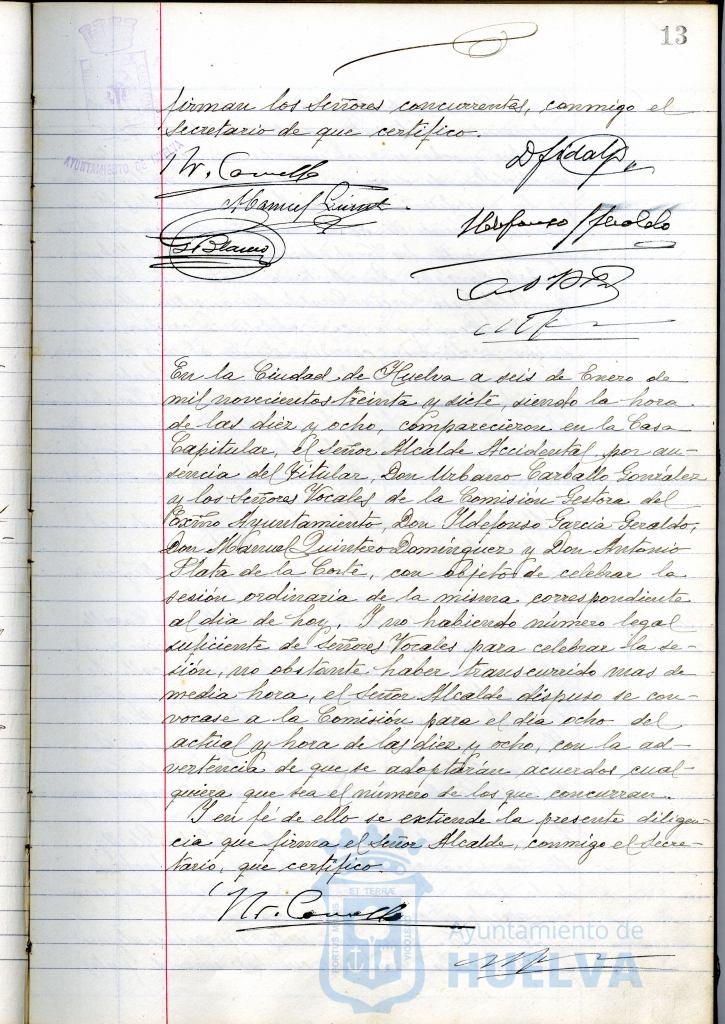 13
firman los Señores concurrentes, conmigo el
Secretario de que certifico.
AYUNTAMIENTO DE HUELVA
Manuel Quint
D Fidalgo
G Blanco
Ildefonso Geraldo
En la Ciudad de Huelva a seis de Enero de
mil novecientos treinta y siete, siendo la hora
de las diez y ocho, comparecieron en la Casa
Capitular, el Señor Alcalde Accidental, por au-
sencia del Titular, Don Urbano Carballo González
y los Señores Vocales de la Comisión Gestora del
Excmo Ayuntamiento, Don Ildefonso García Geraldo,
Don Manuel Quintero Domínguez y Don Antonio
Plata de la Corte, con objeto de celebrar la
sesión ordinaria de la misma correspondiente
al dia de hoy. Y no habiendo número legal
suficiente de Señores Vocales para celebrar la se-
sión, no obstante haber transcurrido mas de
media hora, el Señor Alcalde dispuso se con-
vocase a la Comisión para el día ocho del
actual y hora de las diez y ocho, con la ad-
vertencia de que se adoptarán acuerdos cual-
quiera que sea el número de los que concurran.
Y en fé de ello se extiende la presente diligen-
cia que firma el Señor Alcalde, conmigo el Secre-
tario, que certifico.
PORTUS MARIS ET TERRAE CUSTODIA
Ayuntamiento de
HUELVA